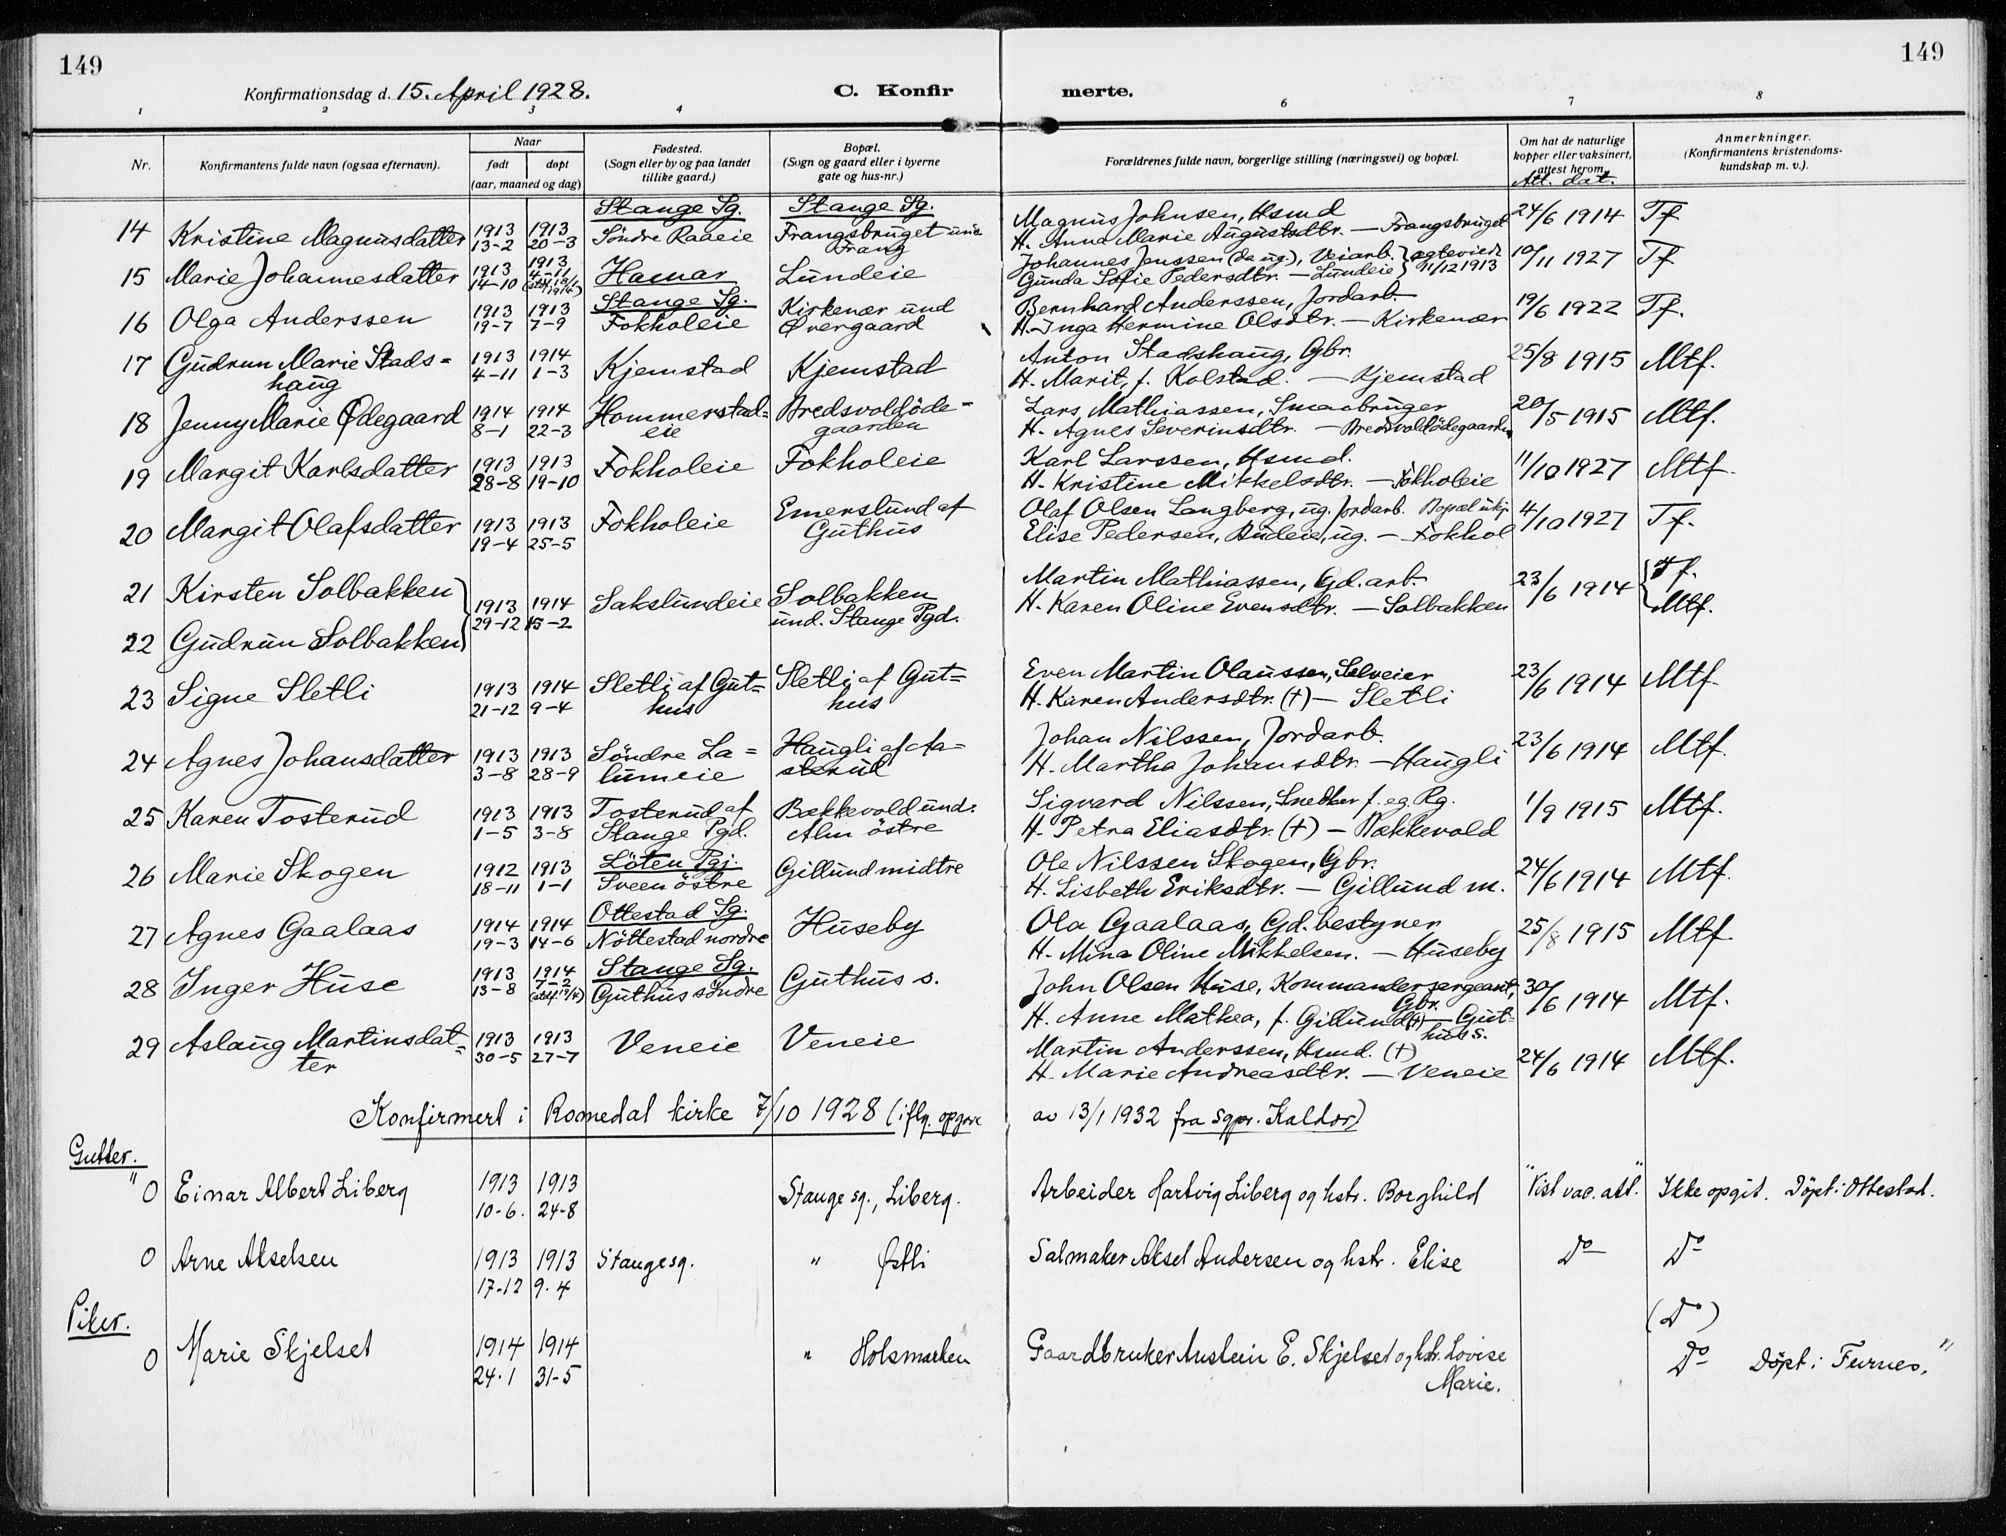 149
149
Konfirmationsdag d. 15. April 1928.
C. Konfir
merte.
1 2 3 4 6 7 8
Nr.
Konfirmantens fulde navn (ogsaa efternavn).
Naar
født døpt
(aar, maaned og dag)
Fødested.
(Sogn eller by og paa landet
tillike gaard.)
Bopæl.
(Sogn og gaard eller i byerne
gate og hus-nr.)
Forældrenes fulde navn, borgerlige stilling (næringsvei) og bopæl.
Om hat de naturlige
kopper eller vaksinert,
attest herom.
Att. dat.
Anmerkninger.
(Konfirmantens kristendoms-
kundskap m. v.).
Stange Sg. Stange Sg. Magnus Johnsen, Husmd
14 Kristine Magnusdatter 1913 13-2 1913 20-3 Söndre Raaeie Frangsbruget und Frang
H. Anna Marie Augustsdtr. — Frangsbruget 24/6 1914 Tf
15 Marie Johannesdatter 1913 14-10 1913 4-11 Hamar Lundeie
Johannes Jonssen (da ug.), Veiarb. } ægteviet
Gunda Sofie Pedersdtr. — Lundeie } 11/12 1913 10/11 1927 Tf
Stange Sg.
16 Olga Anderssen 1913 19-7 1913 7-9 Fokholeie Kirkenær und Övergaard
Bernhard Anderssen, Jordarb.
H. Inga Hermine Olsdtr. — Kirkenær 19/6 1922 Tf.
17 Gudrun Marie Stads=
haug 1913 4-11 1914 1-3 Kjemstad Kjemstad
Anton Stadshaug, Gbr.
H. Marit, f. Kolstad. — Kjemstad 25/8 1915 Mtf.
18 Jenny Marie Ödegaard 1914 8-1 1914 22-3 Hommerstad=
eie Bredsvoldöde-
gaarden
Lars Mathiassen, Smaabruger
H. Agnes Severinsdtr. — Bredsvoldödegaarden 20/5 1915 Mtf.
19 Margit Karlsdatter 1913 28-8 1913 19-10 Fokholeie Fokholeie
Karl Larssen, Husmd.
H. Kristine Mikkelsdtr. — Fokholeie 11/10 1927 Mtf.
20 Margit Olafsdatter 1913 19-4 1913 25-5 Fokholeie Emerslund af
Guthus
Olaf Olsen Langberg, ug. Jordarb. Bopæl ukj.
Elise Pedersen, Budeie, ug. — Fokhol 4/10 1927 Tf.
21 Kirsten Solbakken
22 Gudrun Solbakken
1913 29-12 1914 15-2 Sakslundeie Solbakken
und. Stange Pgd.
Martin Mathiassen, Gd. arb.
H. Karen Oline Evensdtr. — Solbakken 23/6 1914 Tf.
Mtf.
23 Signe Sletli 1913 21-12 1914 9-4 Sletli af Gut=
hus Sletli af Gut=
hus
Even Martin Olaussen, Selveier
H. Karen Andersdtr. (†) — Sletli 23/6 1914 Mtf
24 Agnes Johansdatter 1913 3-8 1913 28-9 Söndre La=
lumeie Haugli af Aa-
sterud
Johan Nilssen, Jordarb.
H. Martha Johansdtr. — Haugli 23/6 1914 Mtf.
25 Karen Tosterud 1913 1-5 1913 3-8 Tosterud af
Stange Pgd. Bækkevold und.
Alm östre
Sigvard Nilssen, Snedker f. eg. Rg.
H. Petra Eliasdtr. (†) — Bækkevold 1/9 1915 Mtf.
26 Marie Skogen 1912 18-11 1913 1-1 Löten Pgj.
Sveen östre Gillund midtre
Ole Nilssen Skogen, Gbr.
H. Lisbeth Eriksdtr. — Gillund m. 24/6 1914 Mtf.
27 Agnes Gaalaas 1914 19-3 1914 14-6 Ottestad Sg.
Nöttestad nordre Huseby
Ola Gaalaas, Gd. bestyrer
H. Mina Oline Mikkelsen. — Huseby 25/8 1915 Mtf
28 Inger Huse 1913 13-8 1914 7-2 Stange Sg.
Guthus söndre Guthus s.
John Olsen Huse, Kommandersergeant,
Gbr.
H. Anne Mathea, f. Gillund (†) — Gut=
hus s. 30/6 1914 Mtf.
29 Aslaug Martinsdat=
ter 1913 30-5 1913 27-7 Veneie Veneie
Martin Anderssen, Husmd. (†)
H. Marie Andreasdtr. — Veneie 24/6 1914 Mtf.
Konfirmert i Romedal kirke 7/10 1928 (iflg. opgave av 13/1 1932 fra sgpr. Kaldor)
Gutter.
" 0 Einar Albert Liberg 1913 10-6. 1913 24-8 Stange sg., Liberg.
Arbeider Hartvig Liberg og hstr. Borghild "Vist vac. att." Ikke opgit. Döpt i Ottestad.
0 Arne Akselsen 1913 17-12 1913 9-4 Stange sg. " Østli
Salmaker Aksel Andersen og hstr. Elise Do Do
Piker.
(Do)
0 Marie Skjelset 1914 24-1 1914 31-5 " Holsmarken
Gaardbruker Austein E. Skjelset og hstr. Lovise
Marie. Do Döpt i Furnes."